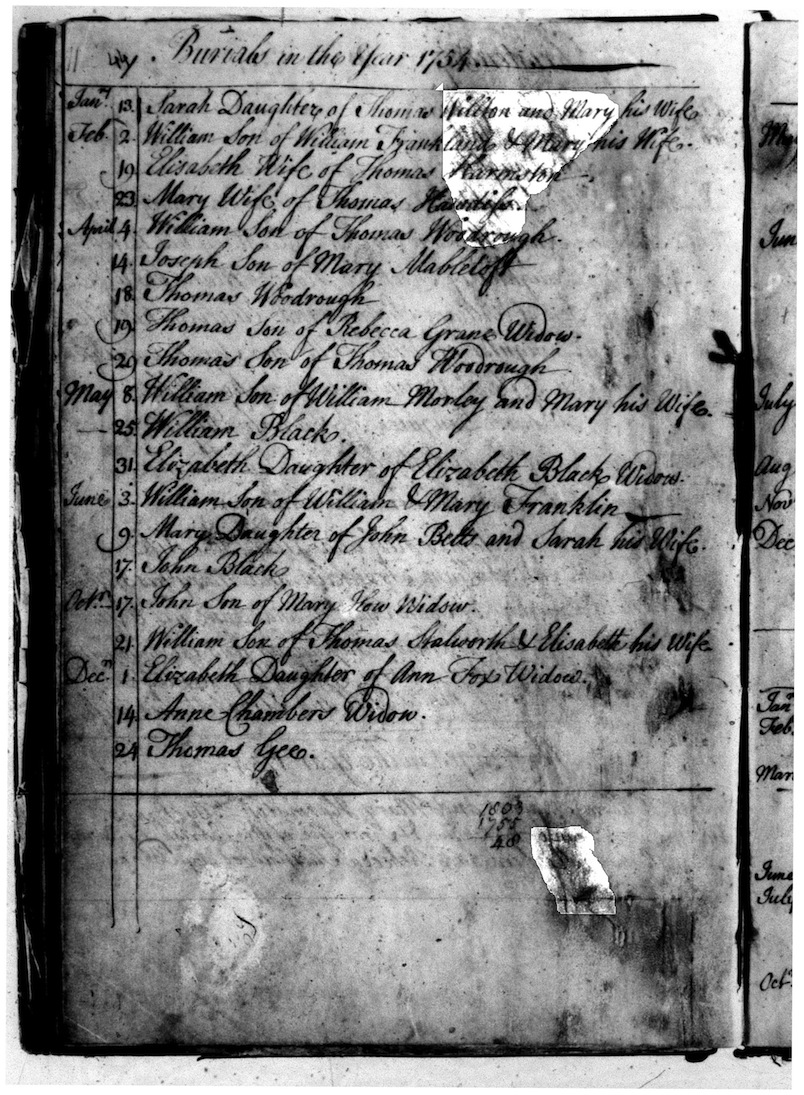 Burials in the Year 1754
Janry 13. Sarah Daughter of Thomas Willson and Mary his Wife
Feb. 2. William Son of William Frankland & Mary his Wife.
19. Elizabeth Wife of Thomas Harmston
23. Mary Wife of Thomas
April 4. William Son of Thomas Woodrough.
14. Joseph Son of Mary Mabletoft
18. Thomas Woodrough
19. Thomas Son of Rebecca Grane Widow.
29 Thomas Son of Thomas Woodrough
May 8. William Son of William Morley and Mary his Wife.
25. William Black.
31. Elizabeth Daughter of Elizabeth Black Widow.
June 3. William Son of William & Mary Franklin
9. Mary Daughter of John Betts and Sarah his Wife.
17. John Black
Octr. 17. John Son of Mary How Widow.
21. William Son of Thomas Stalworth & Elisabeth his Wife
Decr. 1. Elizabeth Daughter of Ann Fox Widow.
14. Anne Chambers Widow.
24 Thomas Gee.
1803
1755
48
June
July
Aug
Nov
Dec
Jan
Feb.
Mar
June
July
Octr